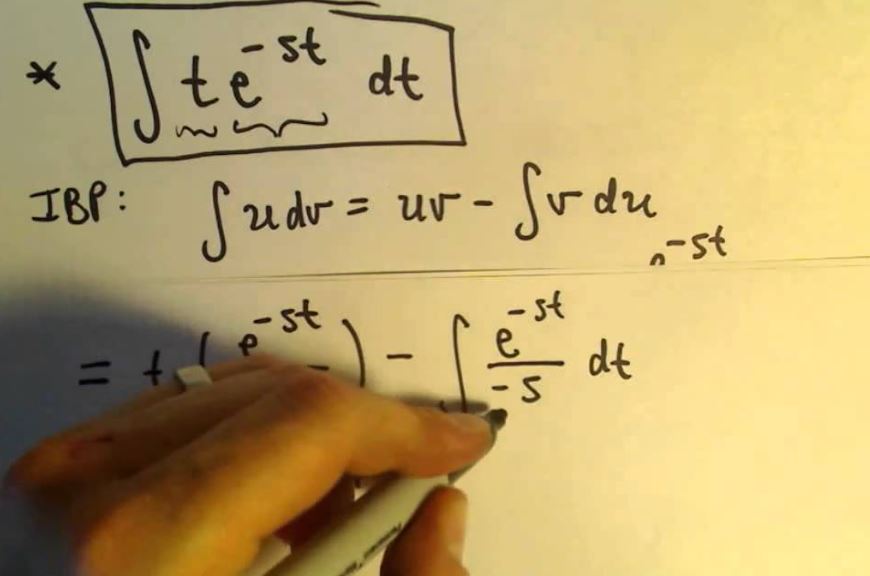 * ∫ t e^{-st} dt
IBP: ∫ u dv = uv - ∫ v du
e^{-st}
= t ( e^{-st} ) - ∫ e^{-st}/-s dt